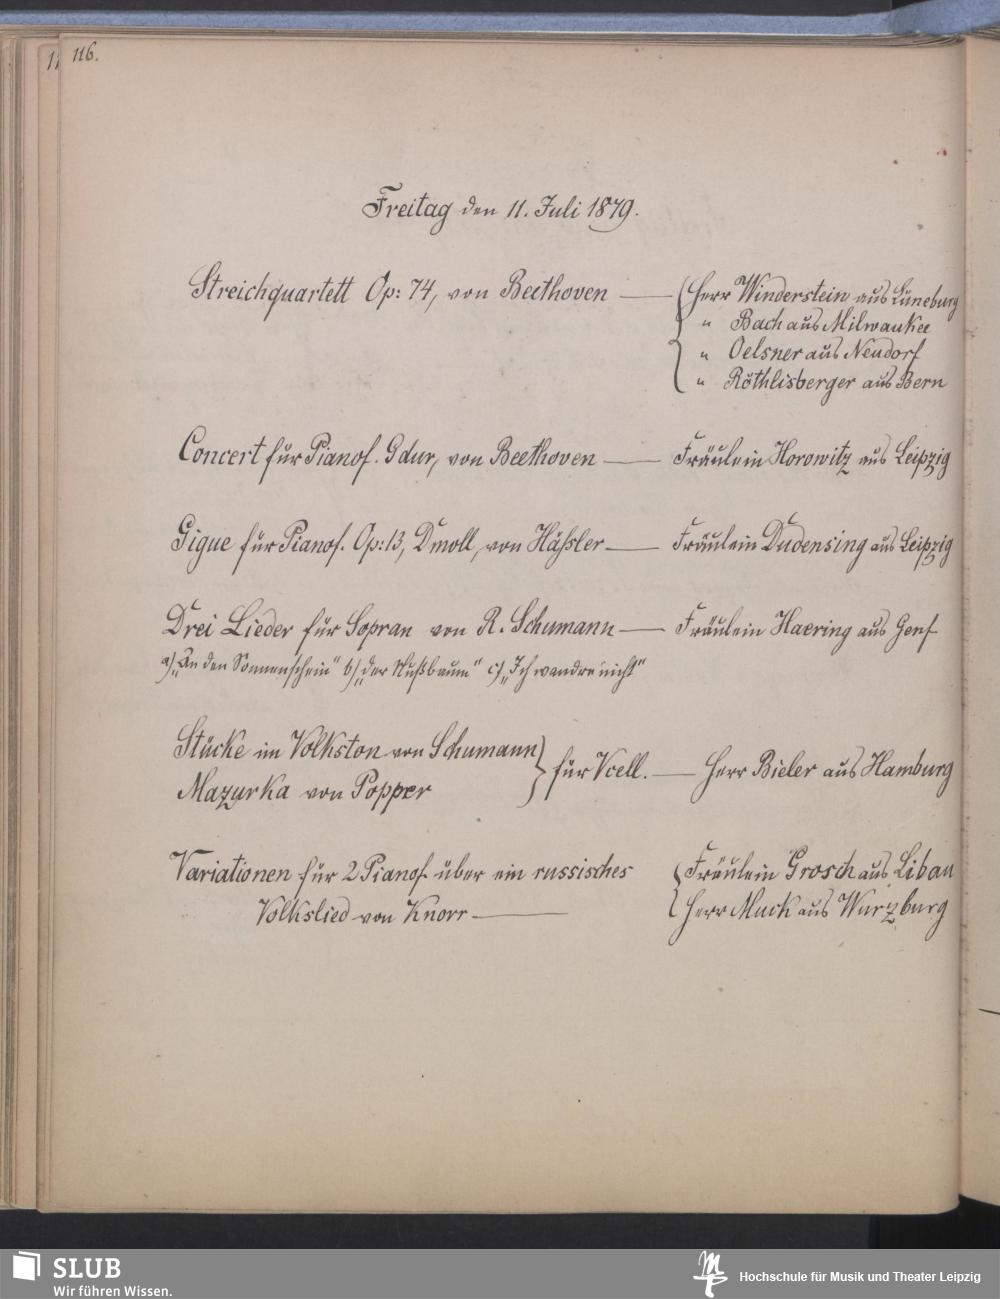 116.
Freitag den 11. Juli 1879.
Streichquartett Op: 74, von Beethoven — Herr Winderstein aus Lüneburg
" Bach aus Milwaukee
" Oelsner aus Neudorf
" Röthlisberger aus Bern
Concert für Pianof. Gdur, von Beethoven — Fräulein Horowitz aus Leipzig
Gigue für Pianof. Op: 13, Dmoll, von Häßler — Fräulein Dudensing aus Leipzig
Drei Lieder für Sopran von R. Schumann — Fräulein Haering aus Genf
a) „An den Sonnenschein" b) „der Nußbaum" c) „Ich wandre nicht"
Stücke im Volkston von Schumann
Mazurka von Popper
für Vcell. — Herr Bieler aus Hamburg
Variationen für 2 Pianof. über ein russisches
Volkslied von Knorr —
Fräulein Grosch aus Libau
Herr Muck aus Würzburg
SLUB
Wir führen Wissen.
Hochschule für Musik und Theater Leipzig